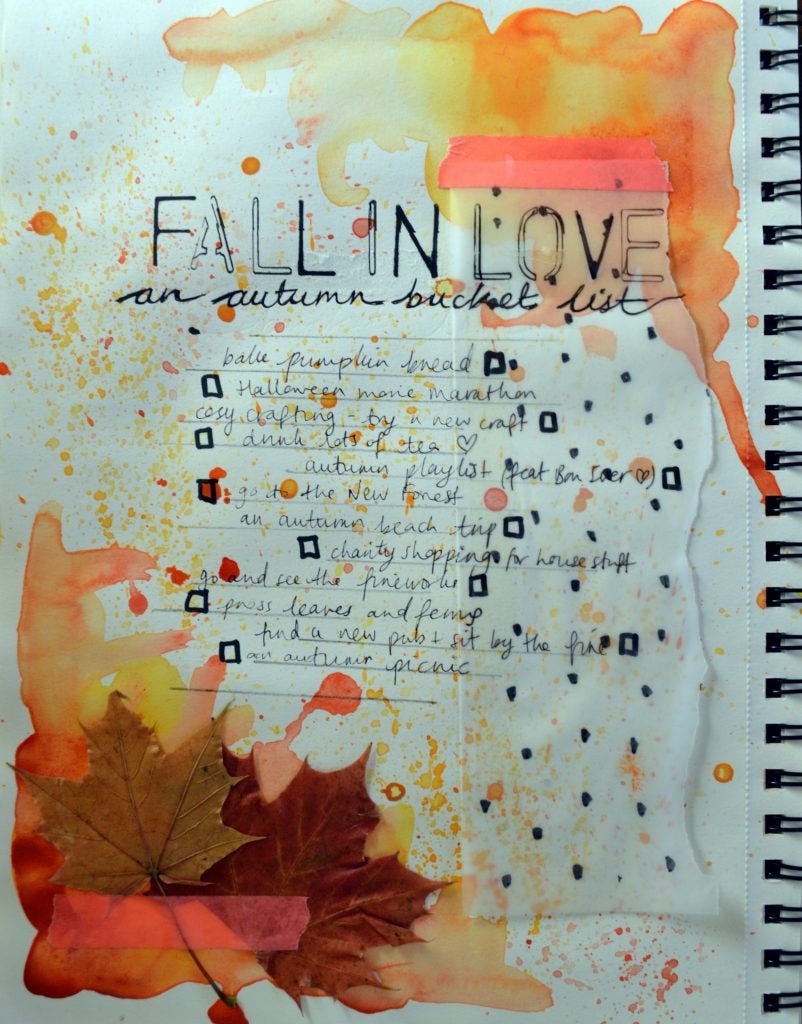 FALL IN LOVE
an autumn bucket list
bake pumpkin bread
Halloween movie marathon
cosy crafting - try a new craft
drink lots of tea ♡
autumn playlist (feat Bon Iver ♡)
go to the New Forest
an autumn beach trip
charity shopping for house stuff
go and see the fireworks
press leaves and ferns
find a new pub + sit by the fire
an autumn picnic